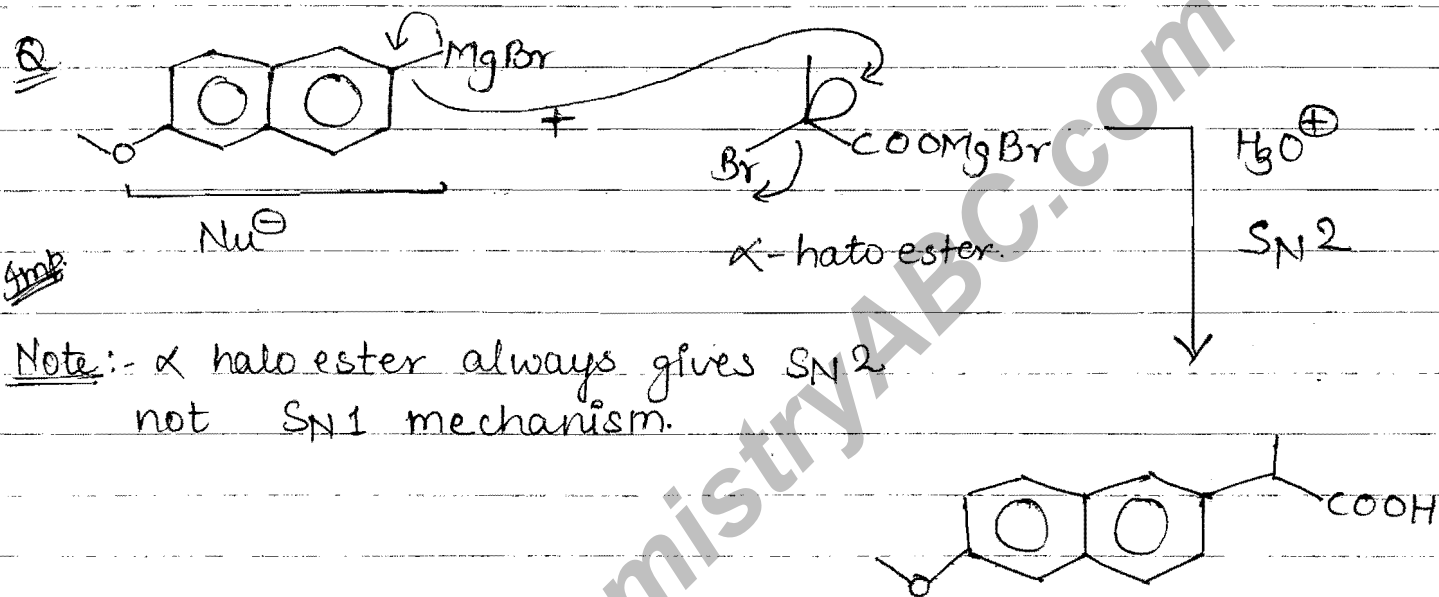 Q
MgBr
O
+
Br
COOMgBr
H3O⊕
Nu⊖
α-hato ester.
SN2
Imp.
Note:- α halo ester always gives SN2
not SN1 mechanism.
COOH
O
mistryABC.com